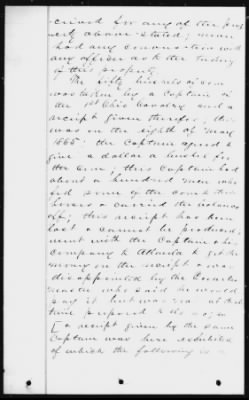 ceived for any of the prop
erty above stated; never
had any conversation with
any officer at the taking
of this property.
The fifty bushels of corn
was taken by a Captain in
the 1st Ohio Cavalry and a
receipt given therefor; this
was on the eighth of May
1865. the Captain agreed to
give a dollar a bushel for
the corn; this Captain had
about a hundred men who
fed some of the corn to their
horses & carried the balance
off; this receipt has been
lost & cannot be produced;
went with the Captain & his
Company to Atlanta to get the
money on the receipt & was
disappointed by the Quarter
master who said he would
pay it but was not at that
time prepared to do so;
[a receipt given by the same
Captain was here exhibited
of which the following is a